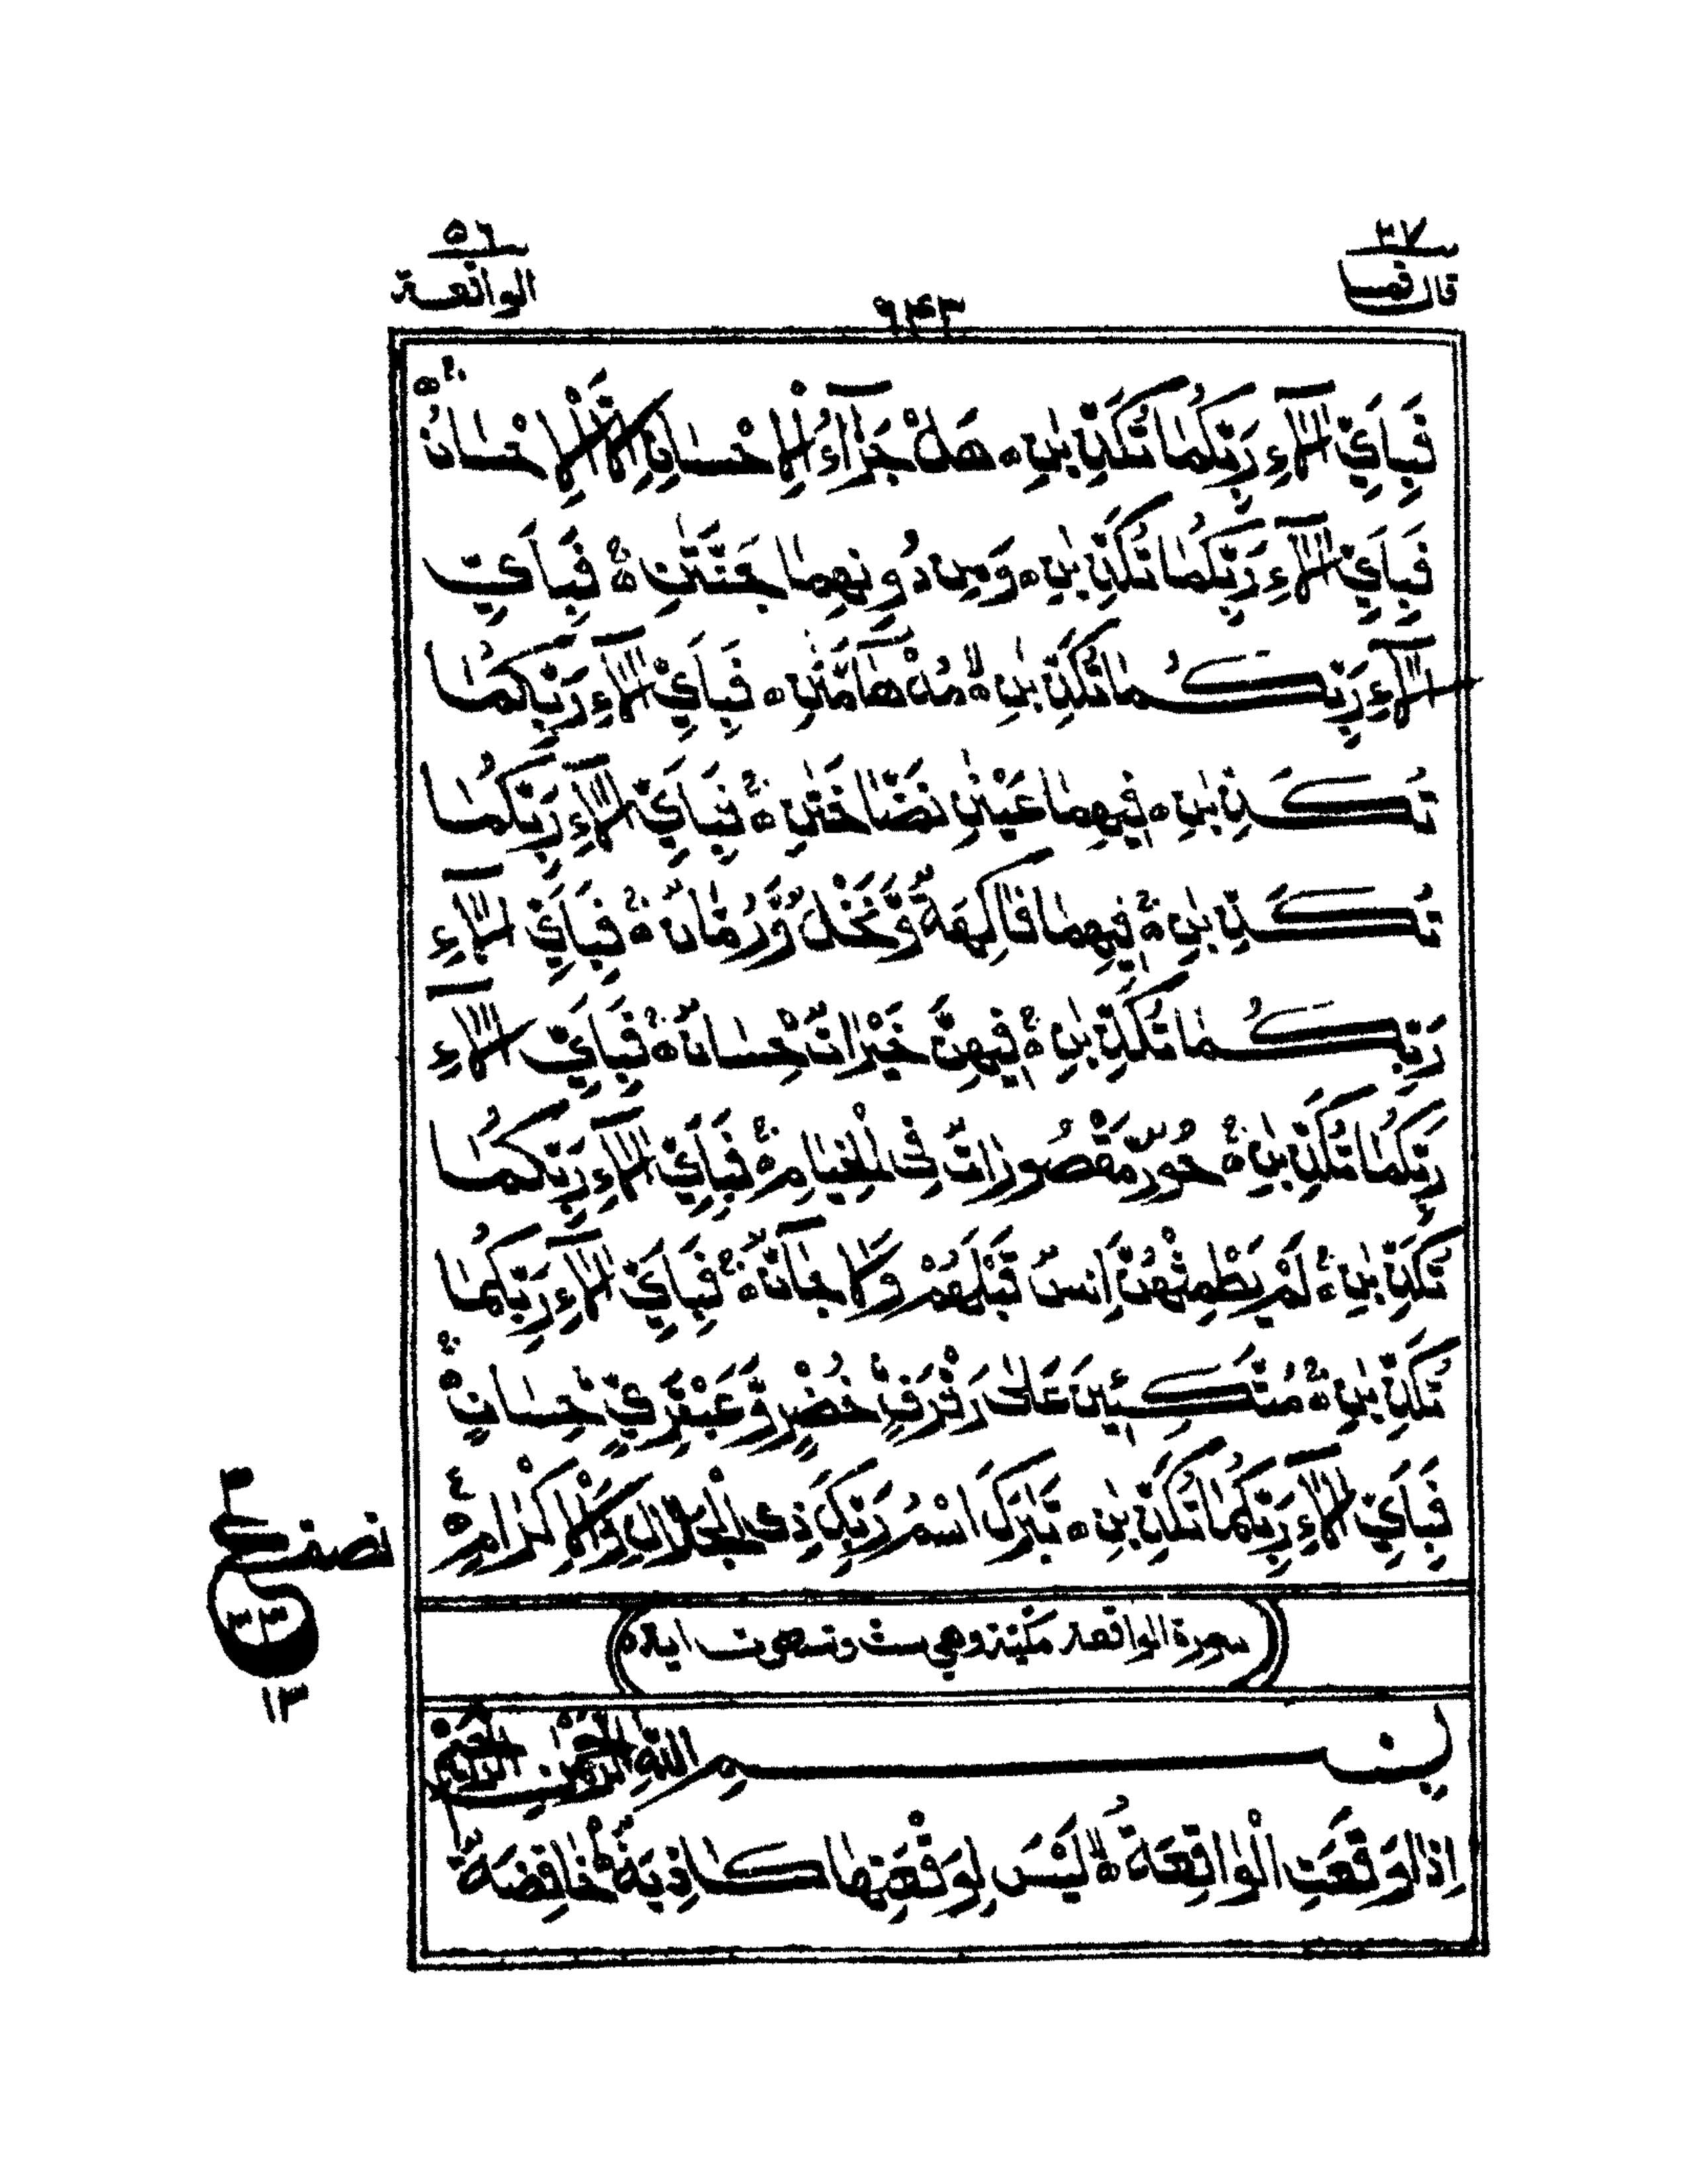 ٢٧
قال فما
٩٤٣
٥٦
الواقعة
فَبِاَيِّ اٰلَآءِ رَبِّكُمَا تُكَذِّبٰنِ ۝ هَلْ جَزَآءُ الْاِحْسَانِ اِلَّا الْاِحْسَانُ ۝ۚ
فَبِاَيِّ اٰلَآءِ رَبِّكُمَا تُكَذِّبٰنِ ۝ وَمِنْ دُوْنِهِمَا جَنَّتٰنِ ۝ۚ فَبِاَيِّ
اٰلَآءِ رَبِّكُمَا تُكَذِّبٰنِ ۝ۙ مُدْهَآمَّتٰنِ ۝ فَبِاَيِّ اٰلَآءِ رَبِّكُمَا
تُكَذِّبٰنِ ۝ فِيْهِمَا عَيْنٰنِ نَضَّاخَتٰنِ ۝ۚ فَبِاَيِّ اٰلَآءِ رَبِّكُمَا
تُكَذِّبٰنِ ۝ۚ فِيْهِمَا فَاكِهَةٌ وَّنَخْلٌ وَّرُمَّانٌ ۝ۚ فَبِاَيِّ اٰلَآءِ
رَبِّكُمَا تُكَذِّبٰنِ ۝ۚ فِيْهِنَّ خَيْرَاتٌ حِسَانٌ ۝ۚ فَبِاَيِّ اٰلَآءِ
رَبِّكُمَا تُكَذِّبٰنِ ۝ۚ حُوْرٌ مَّقْصُوْرَاتٌ فِى الْخِيَامِ ۝ۚ فَبِاَيِّ اٰلَآءِ رَبِّكُمَا
تُكَذِّبٰنِ ۝ۚ لَمْ يَطْمِثْهُنَّ اِنْسٌ قَبْلَهُمْ وَلَا جَآنٌّ ۝ۚ فَبِاَيِّ اٰلَآءِ رَبِّكُمَا
تُكَذِّبٰنِ ۝ۚ مُتَّكِئِيْنَ عَلٰى رَفْرَفٍ خُضْرٍ وَّعَبْقَرِيٍّ حِسَانٍ ۝ۚ
فَبِاَيِّ اٰلَآءِ رَبِّكُمَا تُكَذِّبٰنِ ۝ تَبٰرَكَ اسْمُ رَبِّكَ ذِى الْجَلَالِ وَالْاِكْرَامِ ۝
نصف
ع
٣
٣٣
١٣
سورة الواقعة مكية وهي ست وتسعون اية
بِسْمِ اللّٰهِ الرَّحْمٰنِ الرَّحِيْمِ
اِذَا وَقَعَتِ الْوَاقِعَةُ ۝ۙ لَيْسَ لِوَقْعَتِهَا كَاذِبَةٌ ۝ۘ خَافِضَةٌ